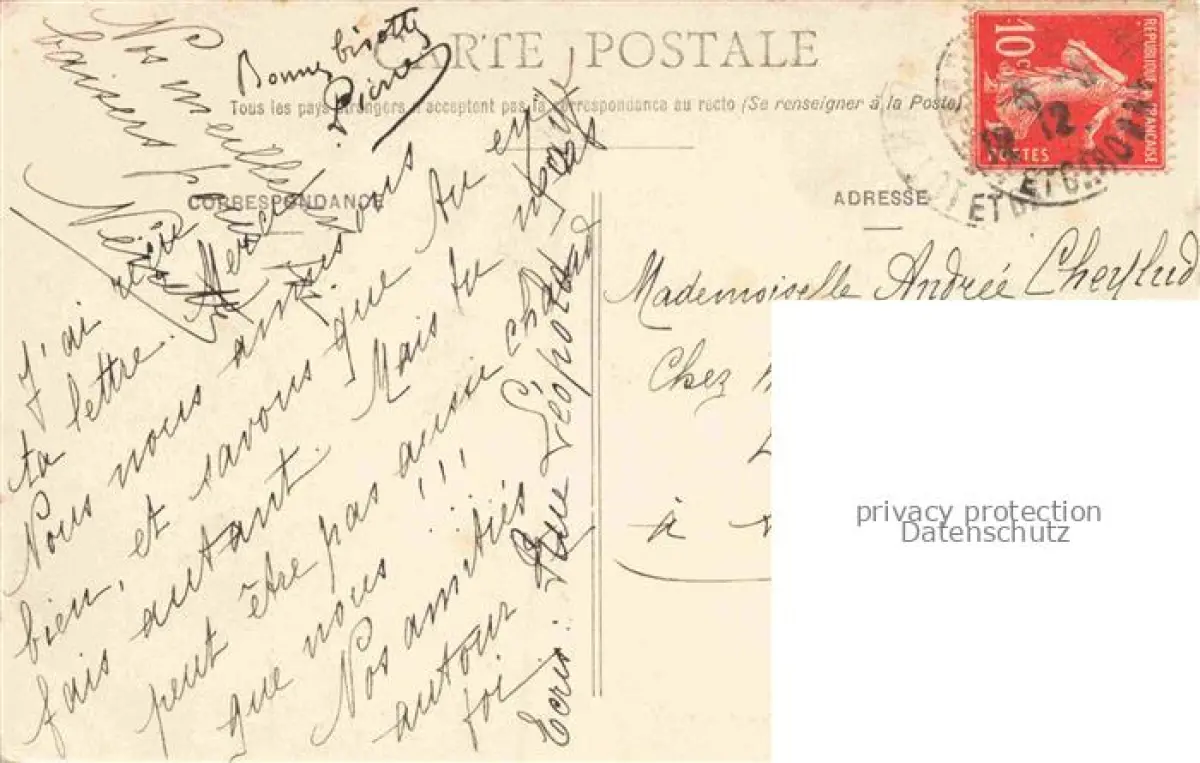 CARTE POSTALE
Tous les pays étrangers n'acceptent pas la correspondance au recto (Se renseigner à la Poste)
CORRESPONDANCE
ADRESSE
RÉPUBLIQUE FRANÇAISE
10c
POSTES
12
ET GIRONNE
Bonne bisotte
Pierre
Nos meilleurs
baisers
J'ai
ta lettre. Merci
Nous nous amusons
bien, et savons que tu en
fais autant. Mais tu n'as
peut être pas aussi chaud
que nous !!!
Nos amitiés
autour
toi
Ecris: Rue Léopold
Mademoiselle Andrée Cheylud
Chez
à
privacy protection
Datenschutz